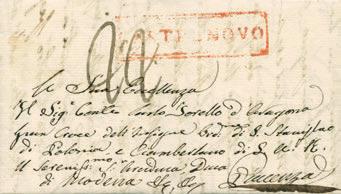 CASTELNOVO
22
A Sua Eccellenza
Il Sig.r Conte Carlo d'Aragona
Gran Croce dell'Insigne Ord. di S. Stanislao
di Polonia e Ciambellano di S. A. R.
il Sereniss.mo Arciduca Duca
di Modena &c &c Piacenza